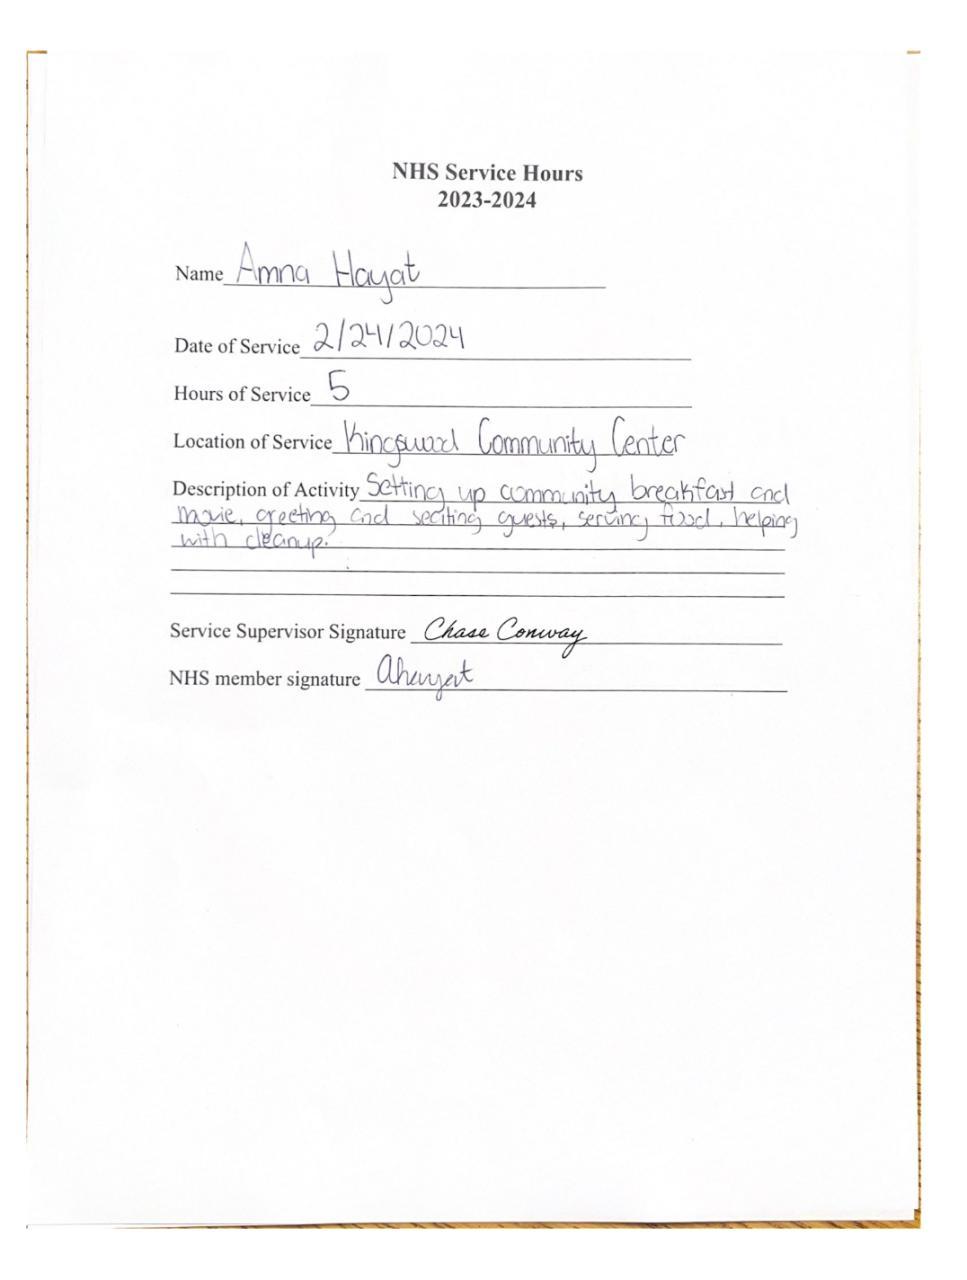 NHS Service Hours
2023-2024
Name Amna Hayat
Date of Service 2/24/2024
Hours of Service 5
Location of Service Kingswood Community Center
Description of Activity Setting up community breakfast and
movie, greeting and seating guests, serving food, helping
with cleanup.
Service Supervisor Signature Chase Conway
NHS member signature